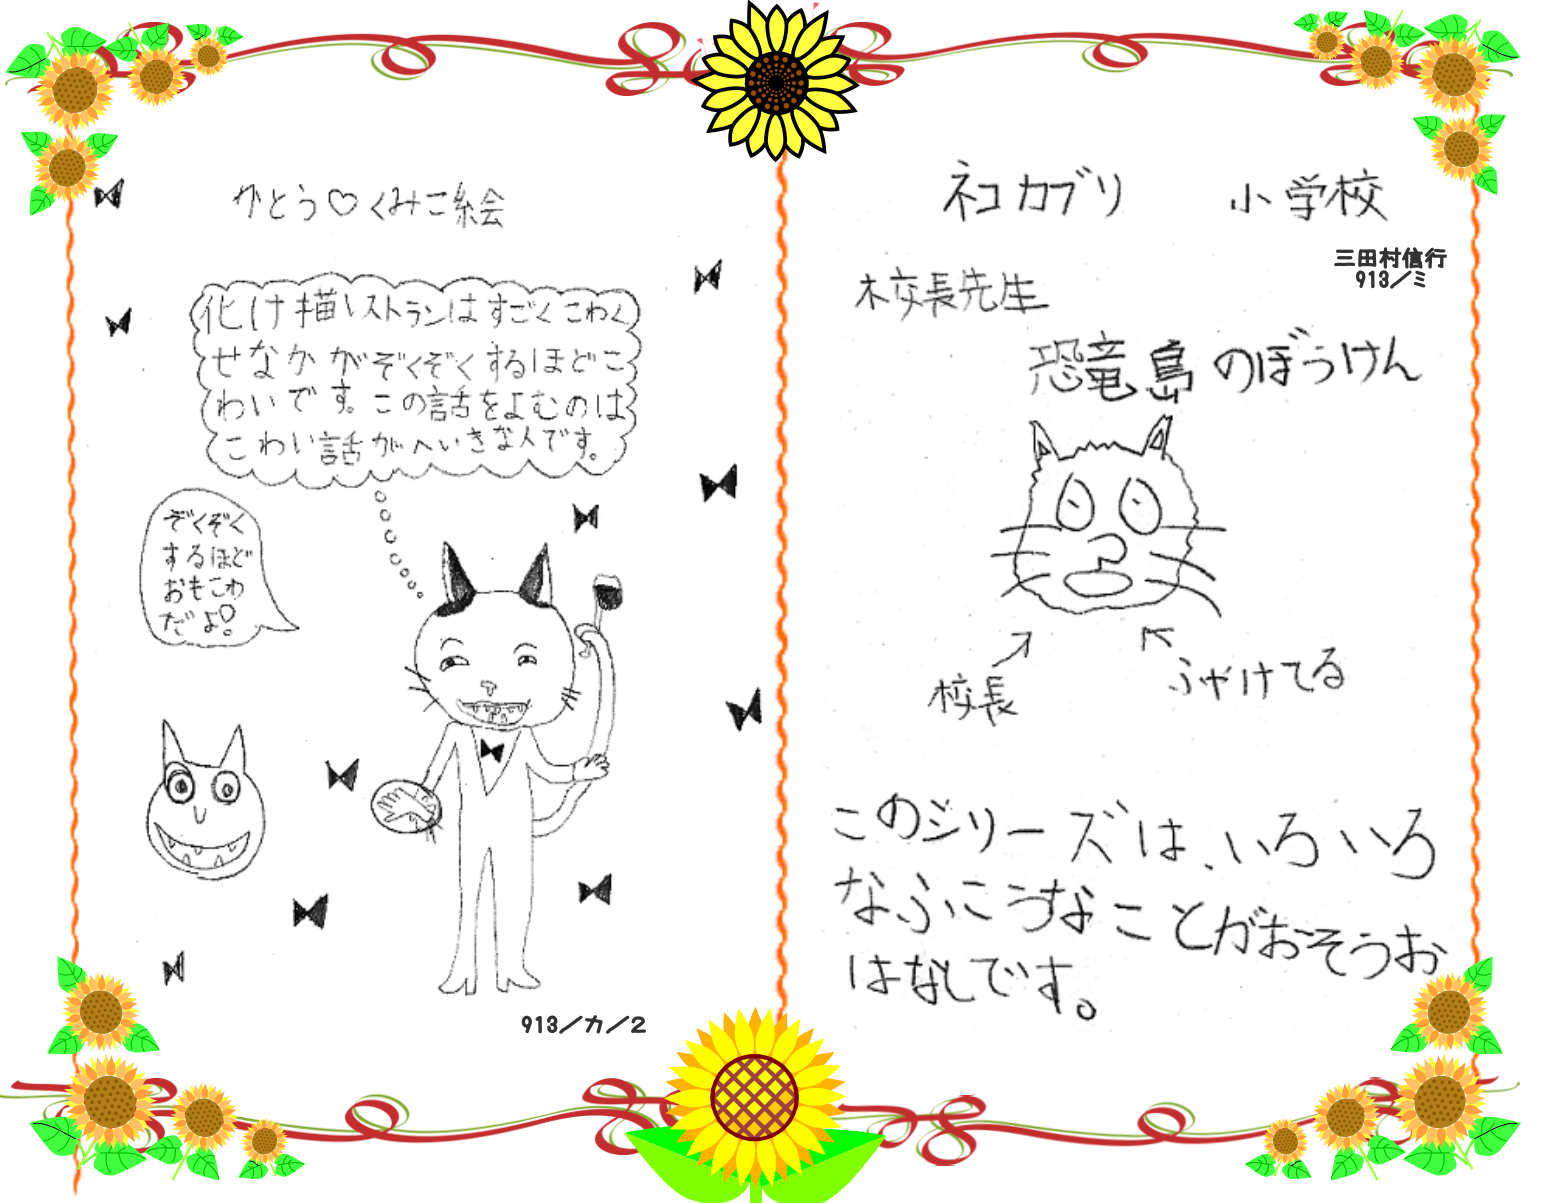 かとう♡くみこ絵
化け猫レストランはすごくこわく
せなかがぞくぞくするほどこ
わいです。この話をよむのは
こわい話がへいきな人です。
ぞくぞく
するほど
おもこわ
だよ!
913/カ/2
ネコカブリ 小学校
三田村信行
913/ミ
校長先生
恐竜島のぼうけん
校長
ふやけてる
このシリーズは、いろいろ
なふこうなことがおそうお
はなしです。